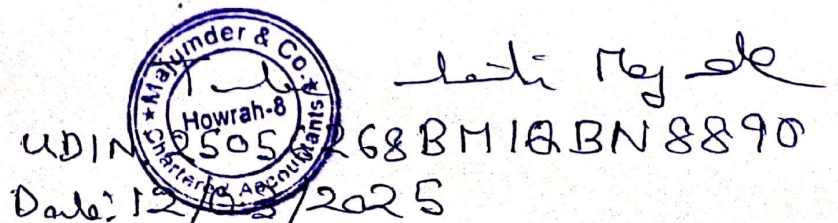 Majumder & Co.
Howrah-8
Chartered Accountants
UDIN 2505 268BMIQBN8890
Date: 12/03/2025